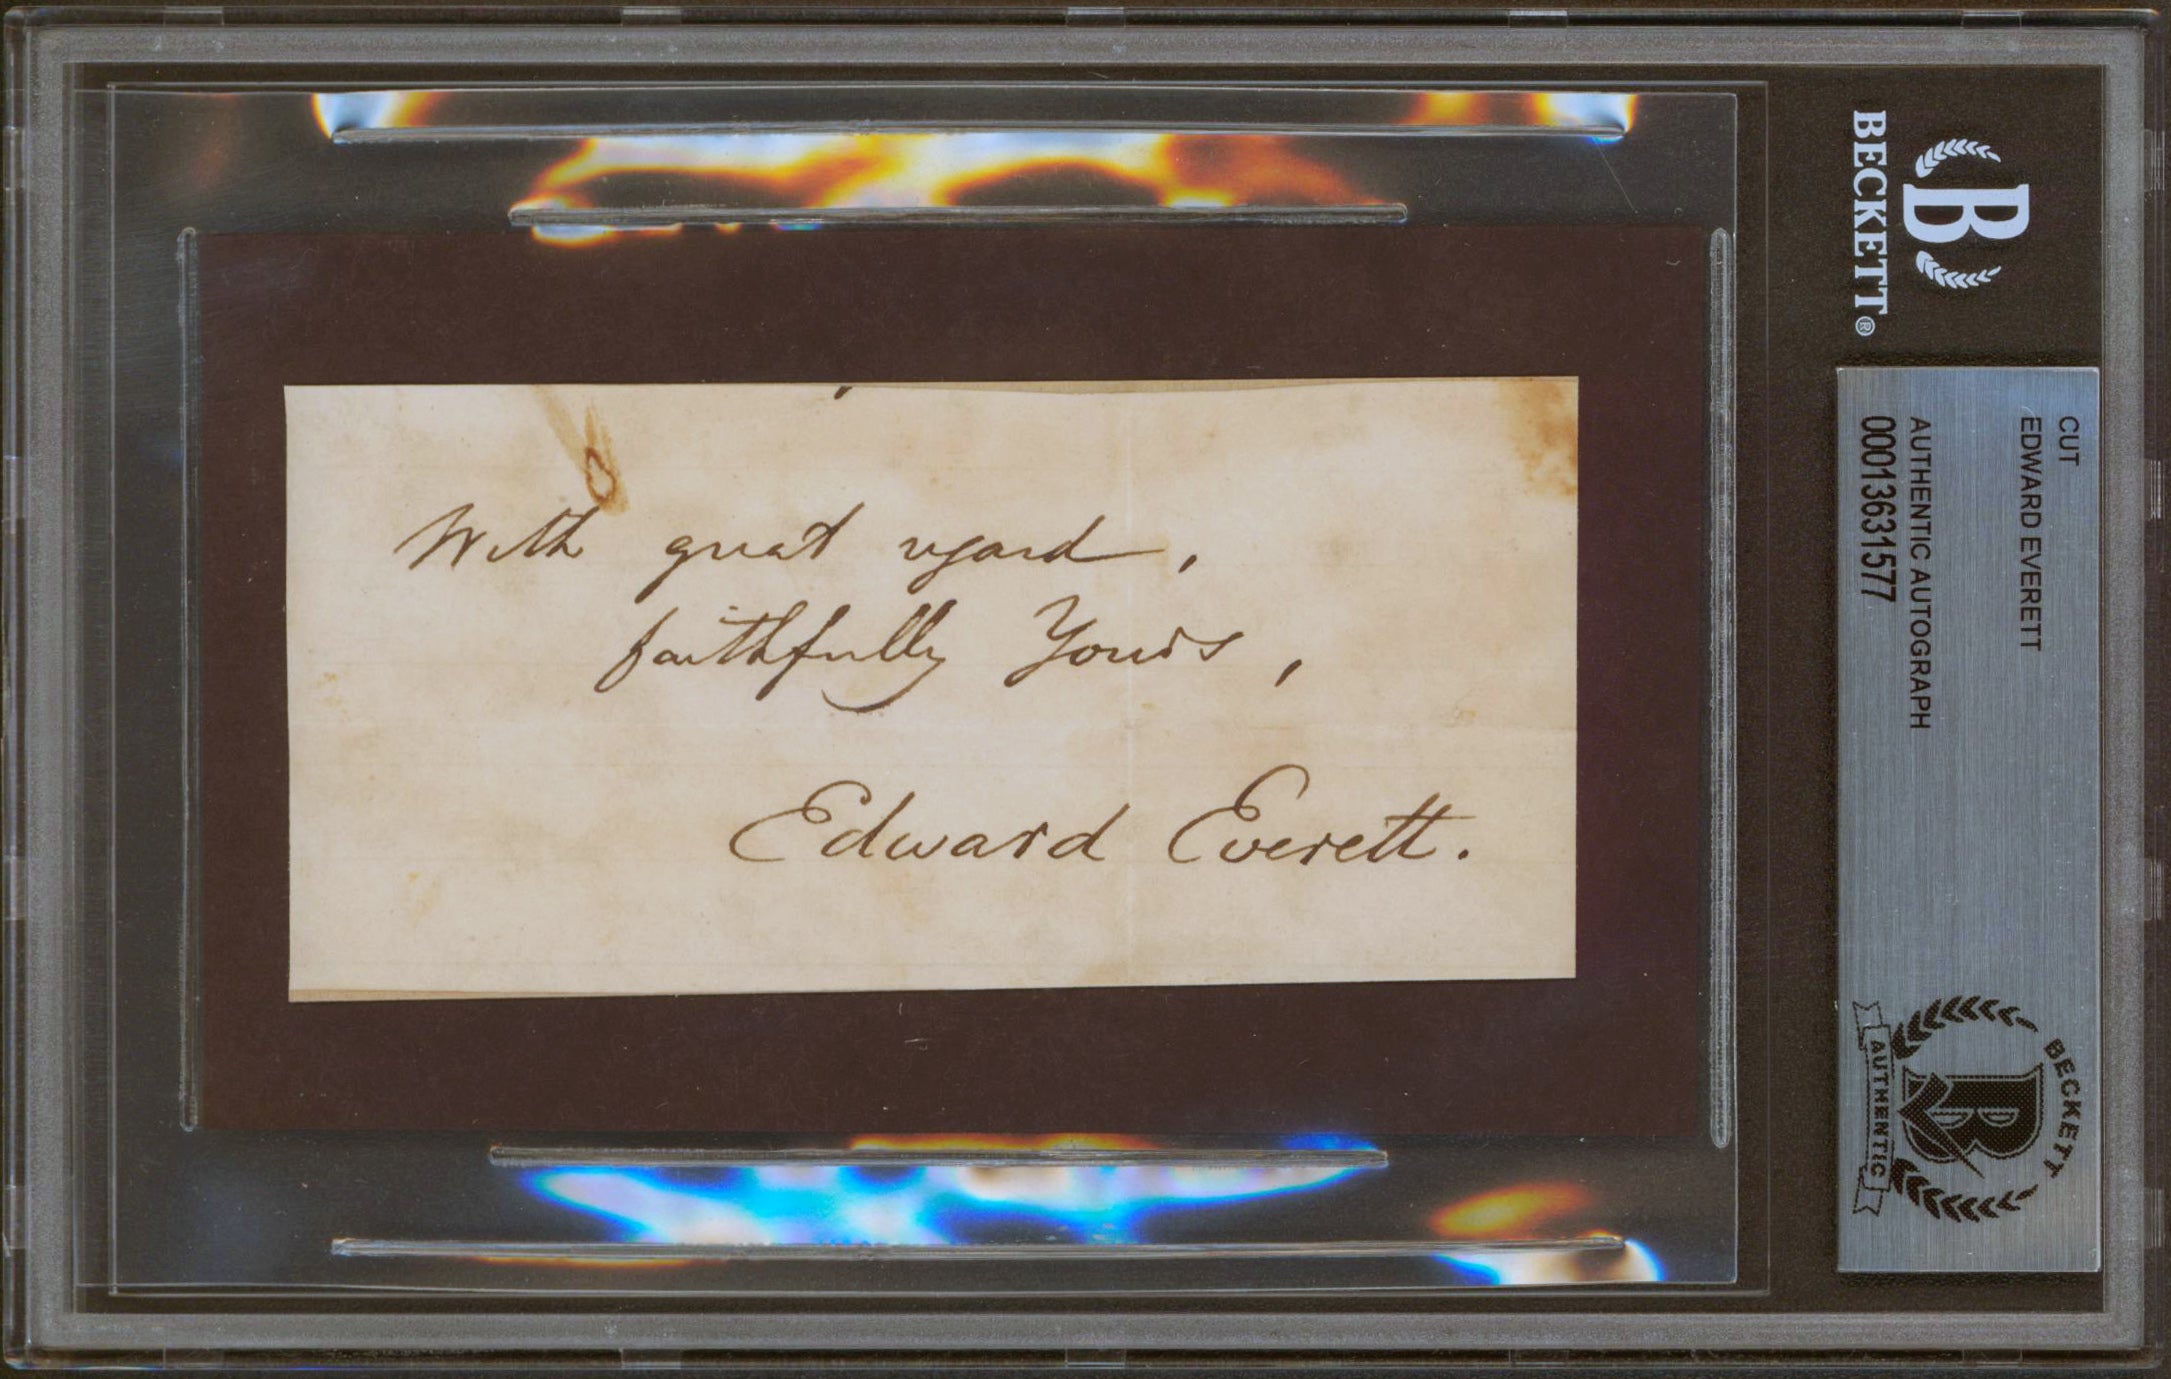 With great regard,
faithfully Yours,
Edward Everett.
B
BECKETT®
CUT
EDWARD EVERETT
AUTHENTIC AUTOGRAPH
00013631577
BECKETT
B
AUTHENTIC